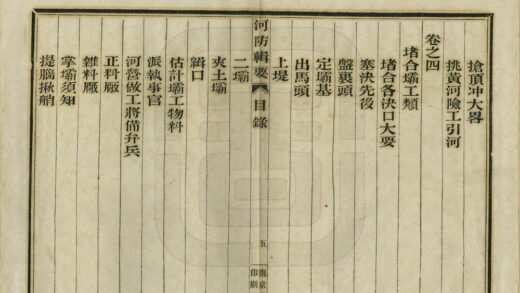 搶頂冲大畧
挑黃河險工引河
卷之四
堵合壩工類
堵合各決口大要
塞決先後
盤裹頭
定壩基
出馬頭
上堤
河防輯要 目錄 五 南京印刷
二壩
夾土壩
緝口
估計壩工物料
派執事官
河營做工將備弁兵
正料廠
雜料廠
掌壩須知
提腦揪艄